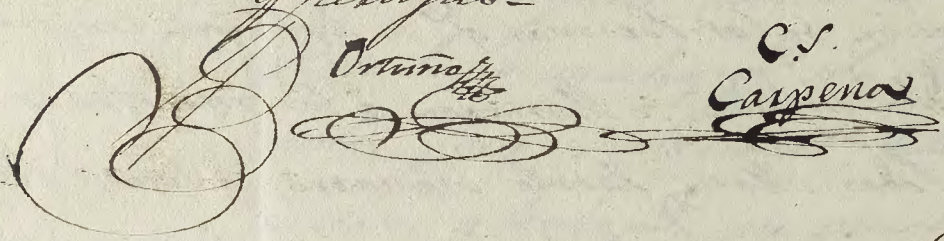 Ortuño
C. S.
Carpena